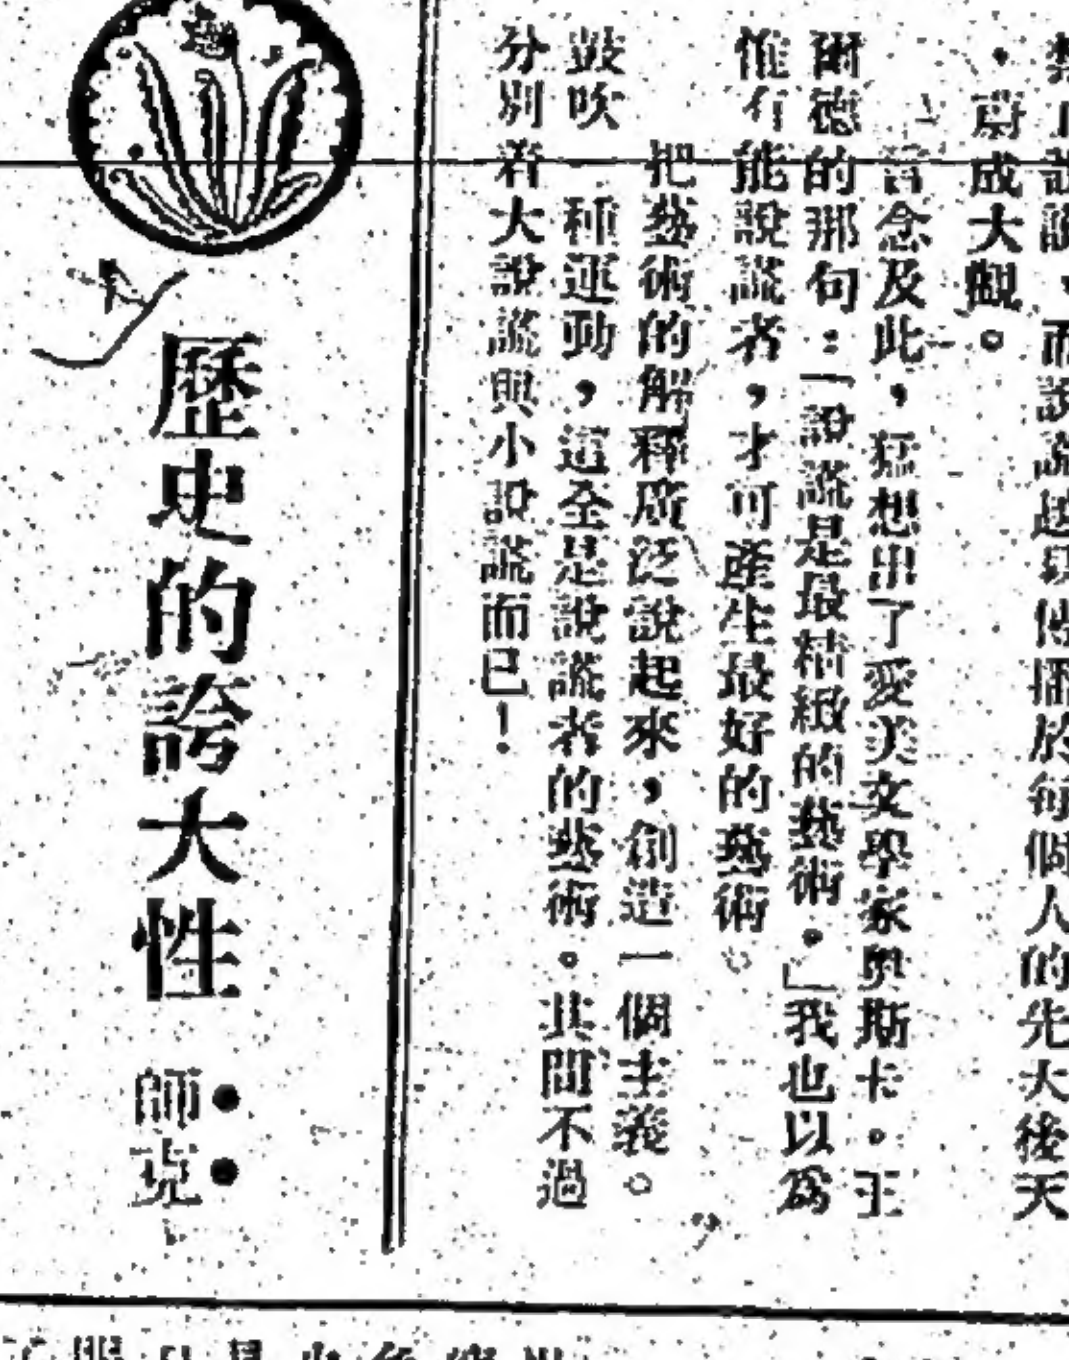 說謊,而說謊越易傳播於每個人的先天後天
,蔚成大觀。
言念及此,猛想出了愛美文學家奧斯卡。王
爾德的那句:「說謊是最精緻的藝術。」我也以爲
惟有能說謊者,才可產生最好的藝術。
把藝術的解釋廣泛說起來,創造一個主義。
鼓吹一種運動,這全是說謊者的藝術。其間不過
分別着大說謊與小說謊而已!
歷史的誇大性
師克